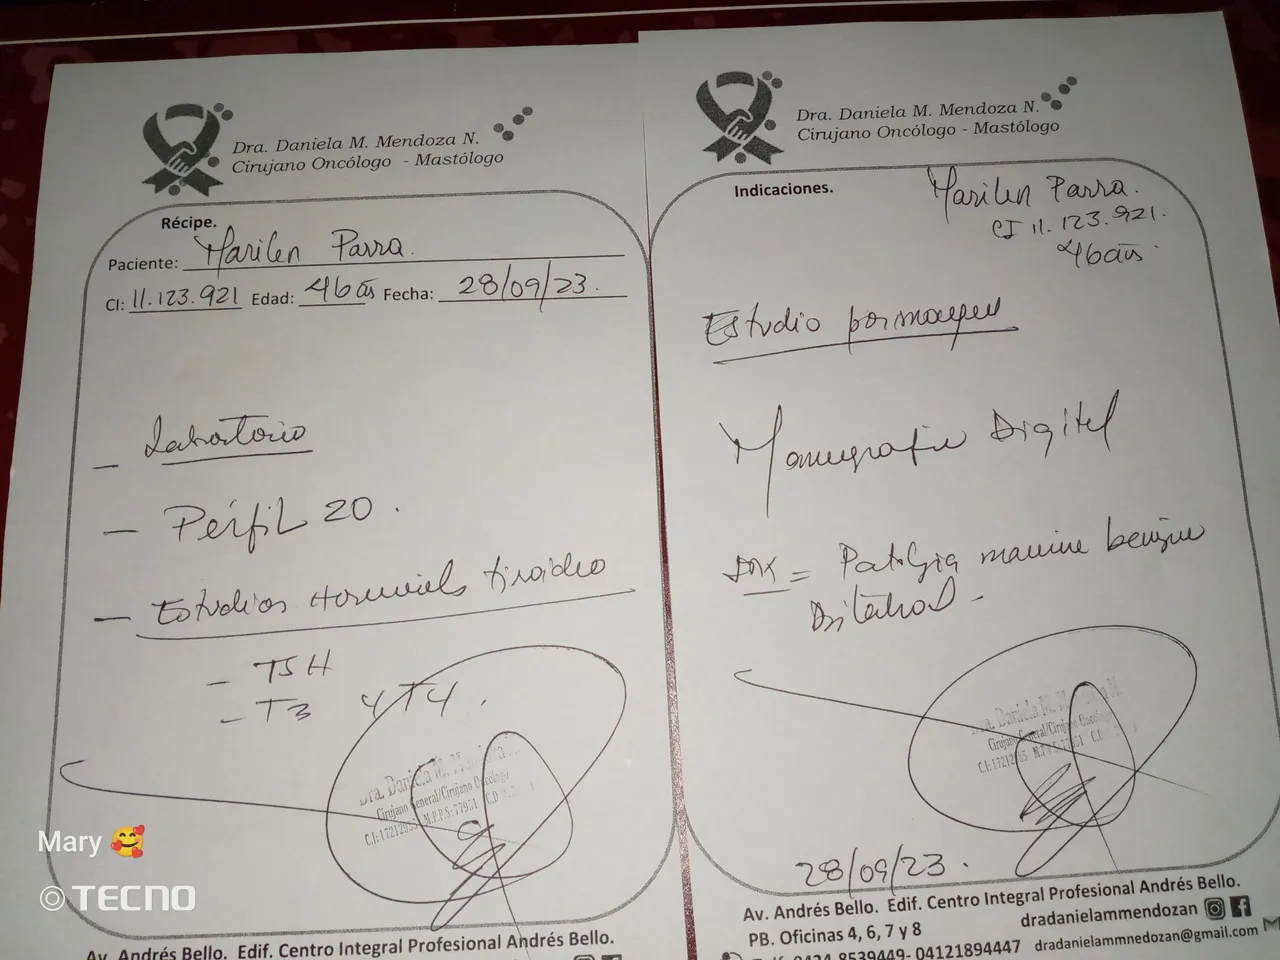 Dra. Daniela M. Mendoza N.
Cirujano Oncólogo - Mastólogo
Récipe.
Paciente: Marilen Parra.
CI: 11.123.921 Edad: 46 años Fecha: 28/09/23.
- Laboratorio
- Perfil 20.
- Estudios Hormonales tiroideo
- TSH
- T3 y T4.
Dra. Daniela M.
Cirujano General/Cirujano Oncólogo
C.I:17212935 M.P.P.S:77951 C.D
Mary 🥰
TECNO
Av. Andrés Bello. Edif. Centro Integral Profesional Andrés Bello.
Dra. Daniela M. Mendoza N.
Cirujano Oncólogo - Mastólogo
Indicaciones.
Marilen Parra.
CI 11.123.921.
46 años
Estudio por imagen
Mamografia Digital
IDX = Patologia mamaria benigna
Bilateral -
Dra. Daniela M. M
Cirujano General/Cirujano Oncólogo
M.P.P.S:77951 C.D
28/09/23.
Av. Andrés Bello. Edif. Centro Integral Profesional Andrés Bello.
PB. Oficinas 4, 6, 7 y 8
dradanielammendozan
0424-8539449- 04121894447
dradanielammnedozan@gmail.com